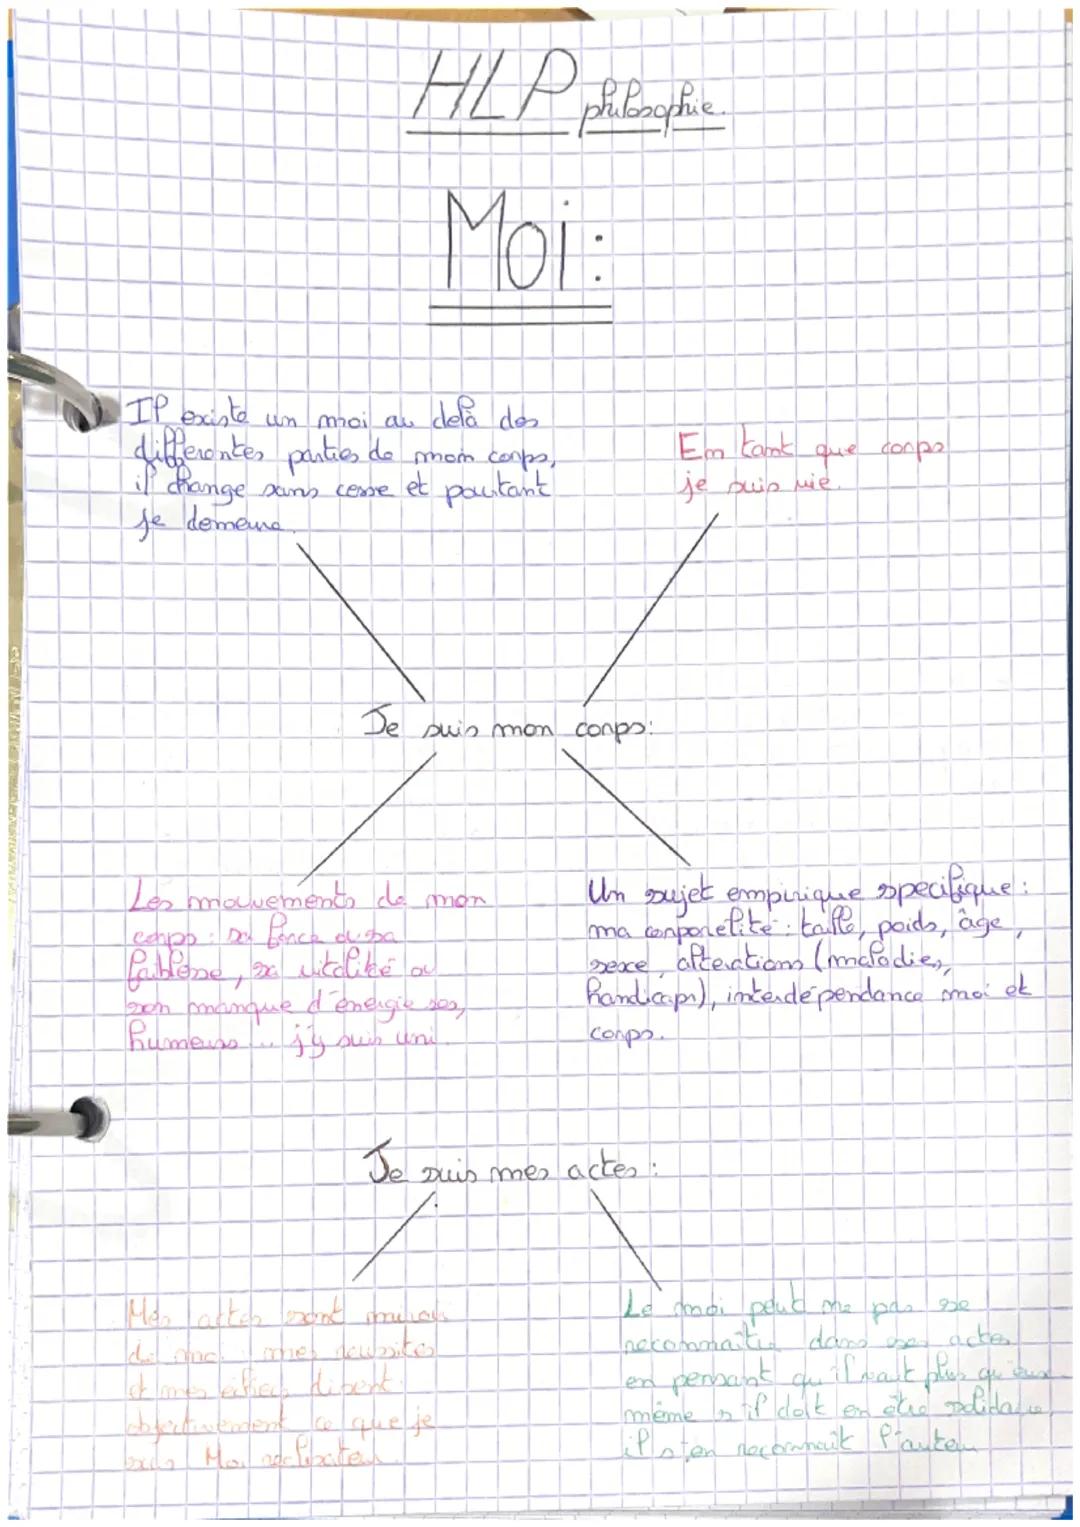 HLP philosophie.
Moi :
Il existe un moi au delà des
differentes parties de mom corps,
il change sans cesse et poutant
je demeure.
En tant que corps
je suis vie.
Je suis mon corps :
Les mouvements de mon
corps : sa force ou sa
faiblesse, sa vitalité ou
son manque d'énergie ses,
humeurs ... j'y suis uni.
Un sujet empirique specifique :
ma corporelité : taille, poids, âge,
sexe, alterations (maladies,
handicaps), interdépendance moi et
corps.
Je suis mes actes :
Mes actes sont miroir
de moi mes réussites
et mes échecs disent
objectivement ce que je
suis Moi
Le moi peut ne pas se
reconnaître dans ses actes
en pensant qu'il vaut plus qu'eux
même s'il doit en être solidaire,
il s'en reconnaît l'auteur